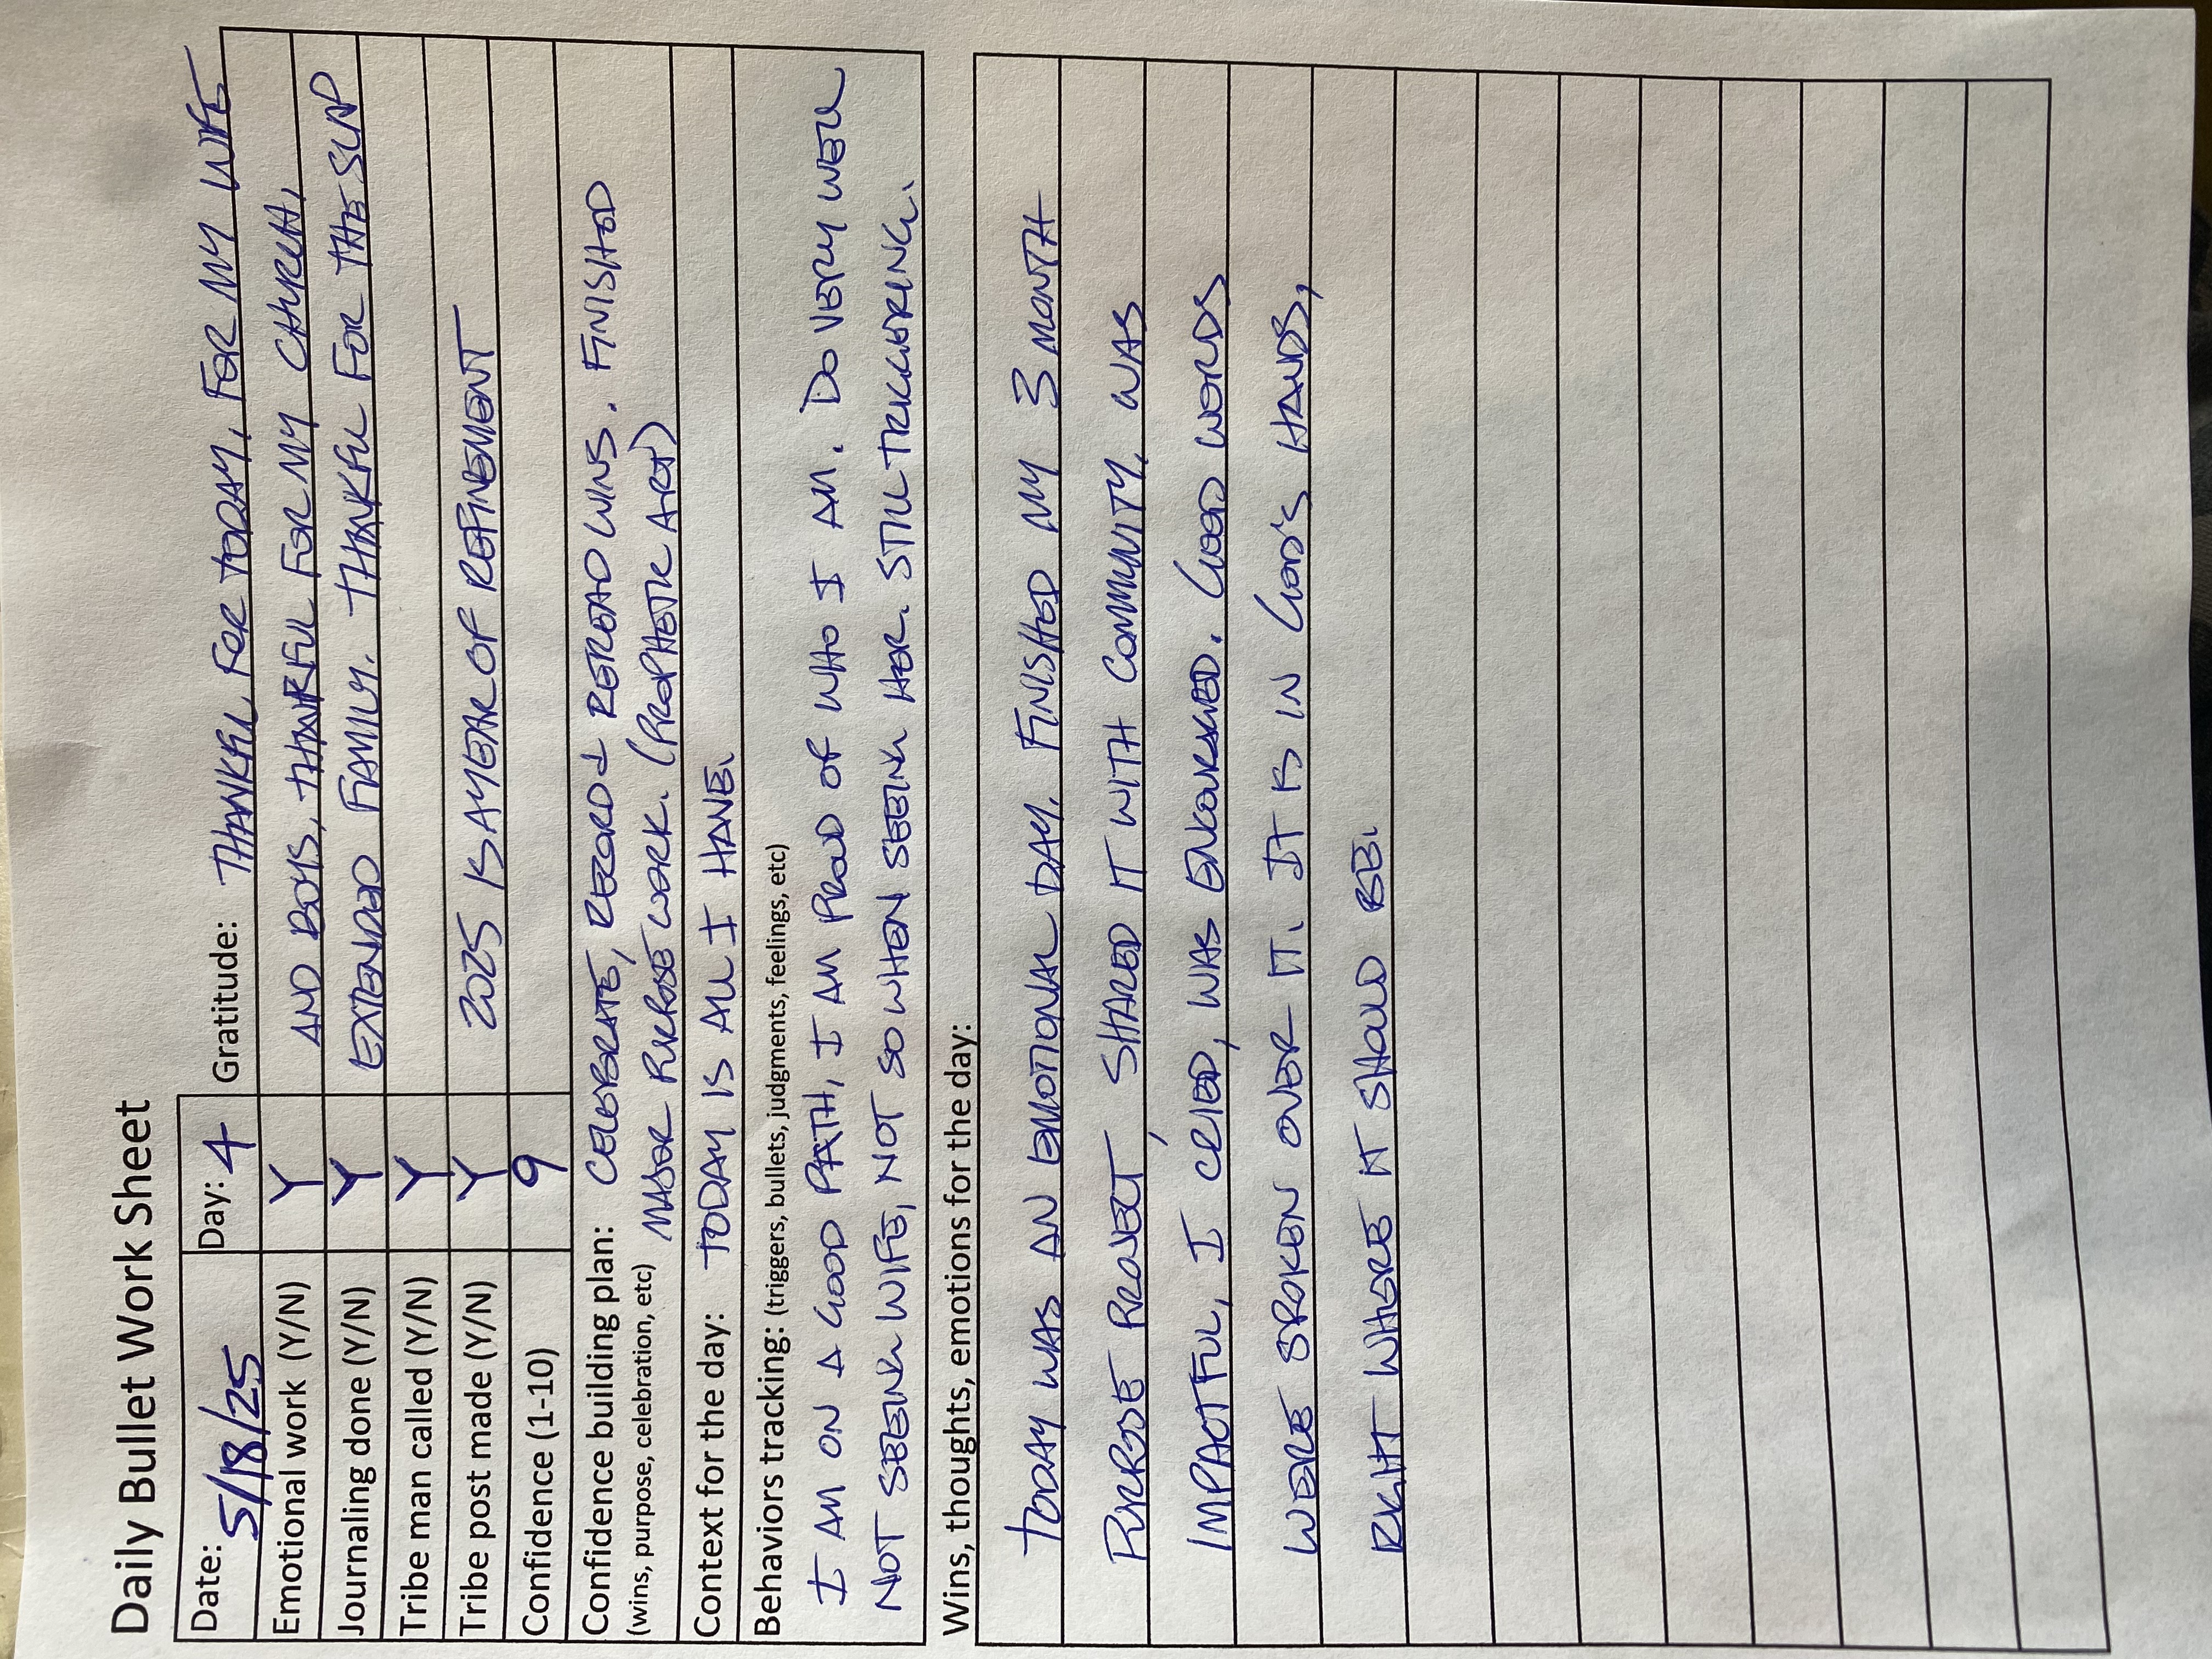 Daily Bullet Work Sheet
Date: 5/18/25 Day: 4 Gratitude: THANKFUL FOR TODAY, FOR MY WIFE
Emotional work (Y/N) Y AND BOYS, THANKFUL FOR MY CHURCH,
Journaling done (Y/N) Y EXTENDED FAMILY. THANKFUL FOR THE SLAP
Tribe man called (Y/N) Y
Tribe post made (Y/N) Y 2025 IS A YEAR OF REFINEMENT
Confidence (1-10) 9
Confidence building plan: CELEBRATE, RECORD & REREAD WINS. FINISHED
(wins, purpose, celebration, etc) MAJOR PURPOSE WORK. (PROPHETIC ART)
Context for the day: TODAY IS ALL I HAVE.
Behaviors tracking: (triggers, bullets, judgments, feelings, etc)
I AM ON A GOOD PATH, I AM PROUD OF WHO I AM. DO VERY WELL
NOT SEEING WIFE, NOT SO WHEN SEEING HER. STILL TRIGGERING.
Wins, thoughts, emotions for the day:
TODAY WAS AN EMOTIONAL DAY. FINISHED MY 3 MONTH
PURPOSE PROJECT. SHARED IT WITH COMMUNITY. WAS
IMPACTFUL, I CRIED, WAS ENCOURAGED. GOOD WORDS
WERE SPOKEN OVER IT. IT IS IN GOD'S HANDS,
RIGHT WHERE IT SHOULD BE.